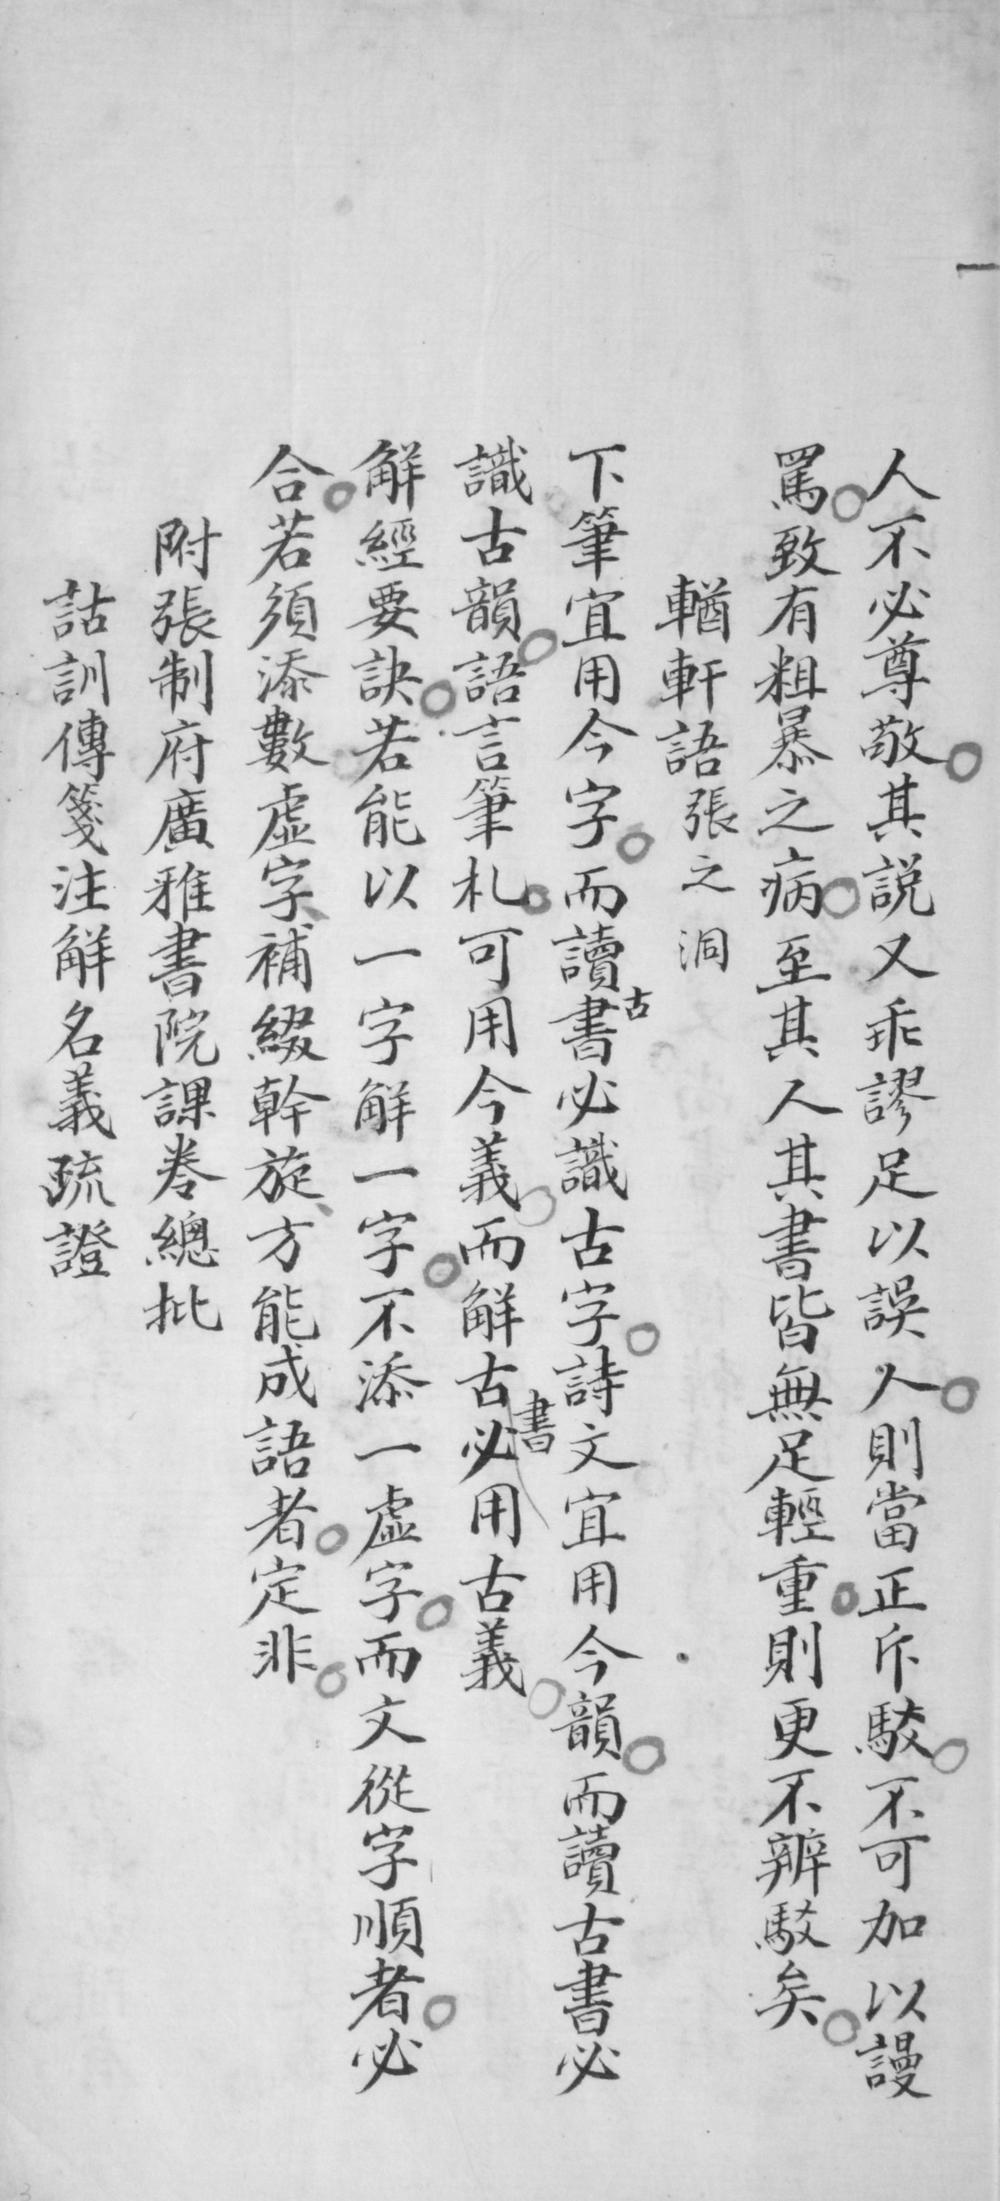 人不必尊敬其説又乖謬足以誤人則當正斥駁不可加以謾
罵致有粗暴之病至其人其書皆無足輕重則更不辨駁矣
輶軒語張之洞
下筆宜用今字而讀古書必識古字詩文宜用今韻而讀古書必
識古韻語言筆札可用今義而解古書必用古義
解經要訣若能以一字解一字不添一虛字而文從字順者必
合若須添數虛字補綴幹旋方能成語者定非
附張制府廣雅書院課卷總批
詁訓傳箋注解名義疏證